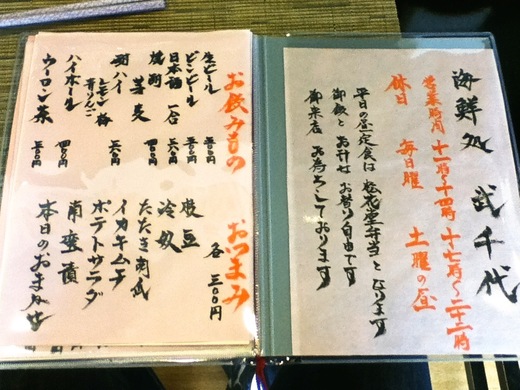 海鮮処 武千代
営業時間 十一時〜十四時 十七時〜二十二時
休日 毎日曜 土曜の昼
平日の昼定食は松花堂弁当となります
御飯とお汁はお替り自由です
御来店お待ちしております
お飲みもの
生ビール 五〇〇円
ビンビール 五〇〇円
日本酒 一合
焼酎 芋 麦
酎ハイ レモン 梅 青りんご
ハイボール 四〇〇円
ウーロン茶 三〇〇円
おつまみ
各 三〇〇円
枝豆
冷奴
たたき胡瓜
イカキムチ
ポテトサラダ
南蛮漬
本日のおまかせ